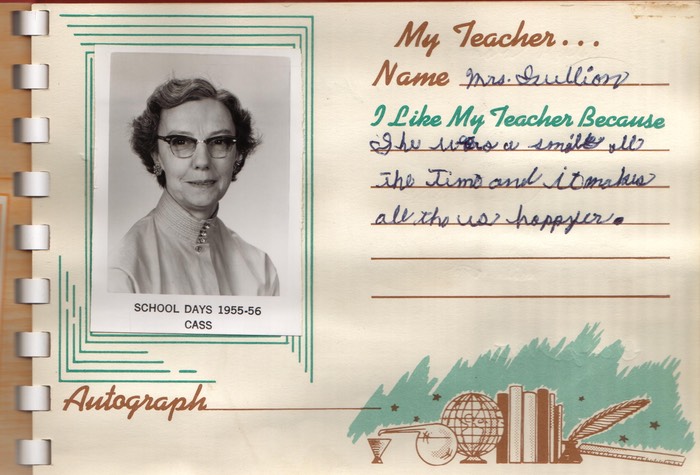 My Teacher...
Name Mrs. Gullion
I Like My Teacher Because
She wears a smile all
the Time and it makes
all the us happyer.
SCHOOL DAYS 1955-56
CASS
Autograph